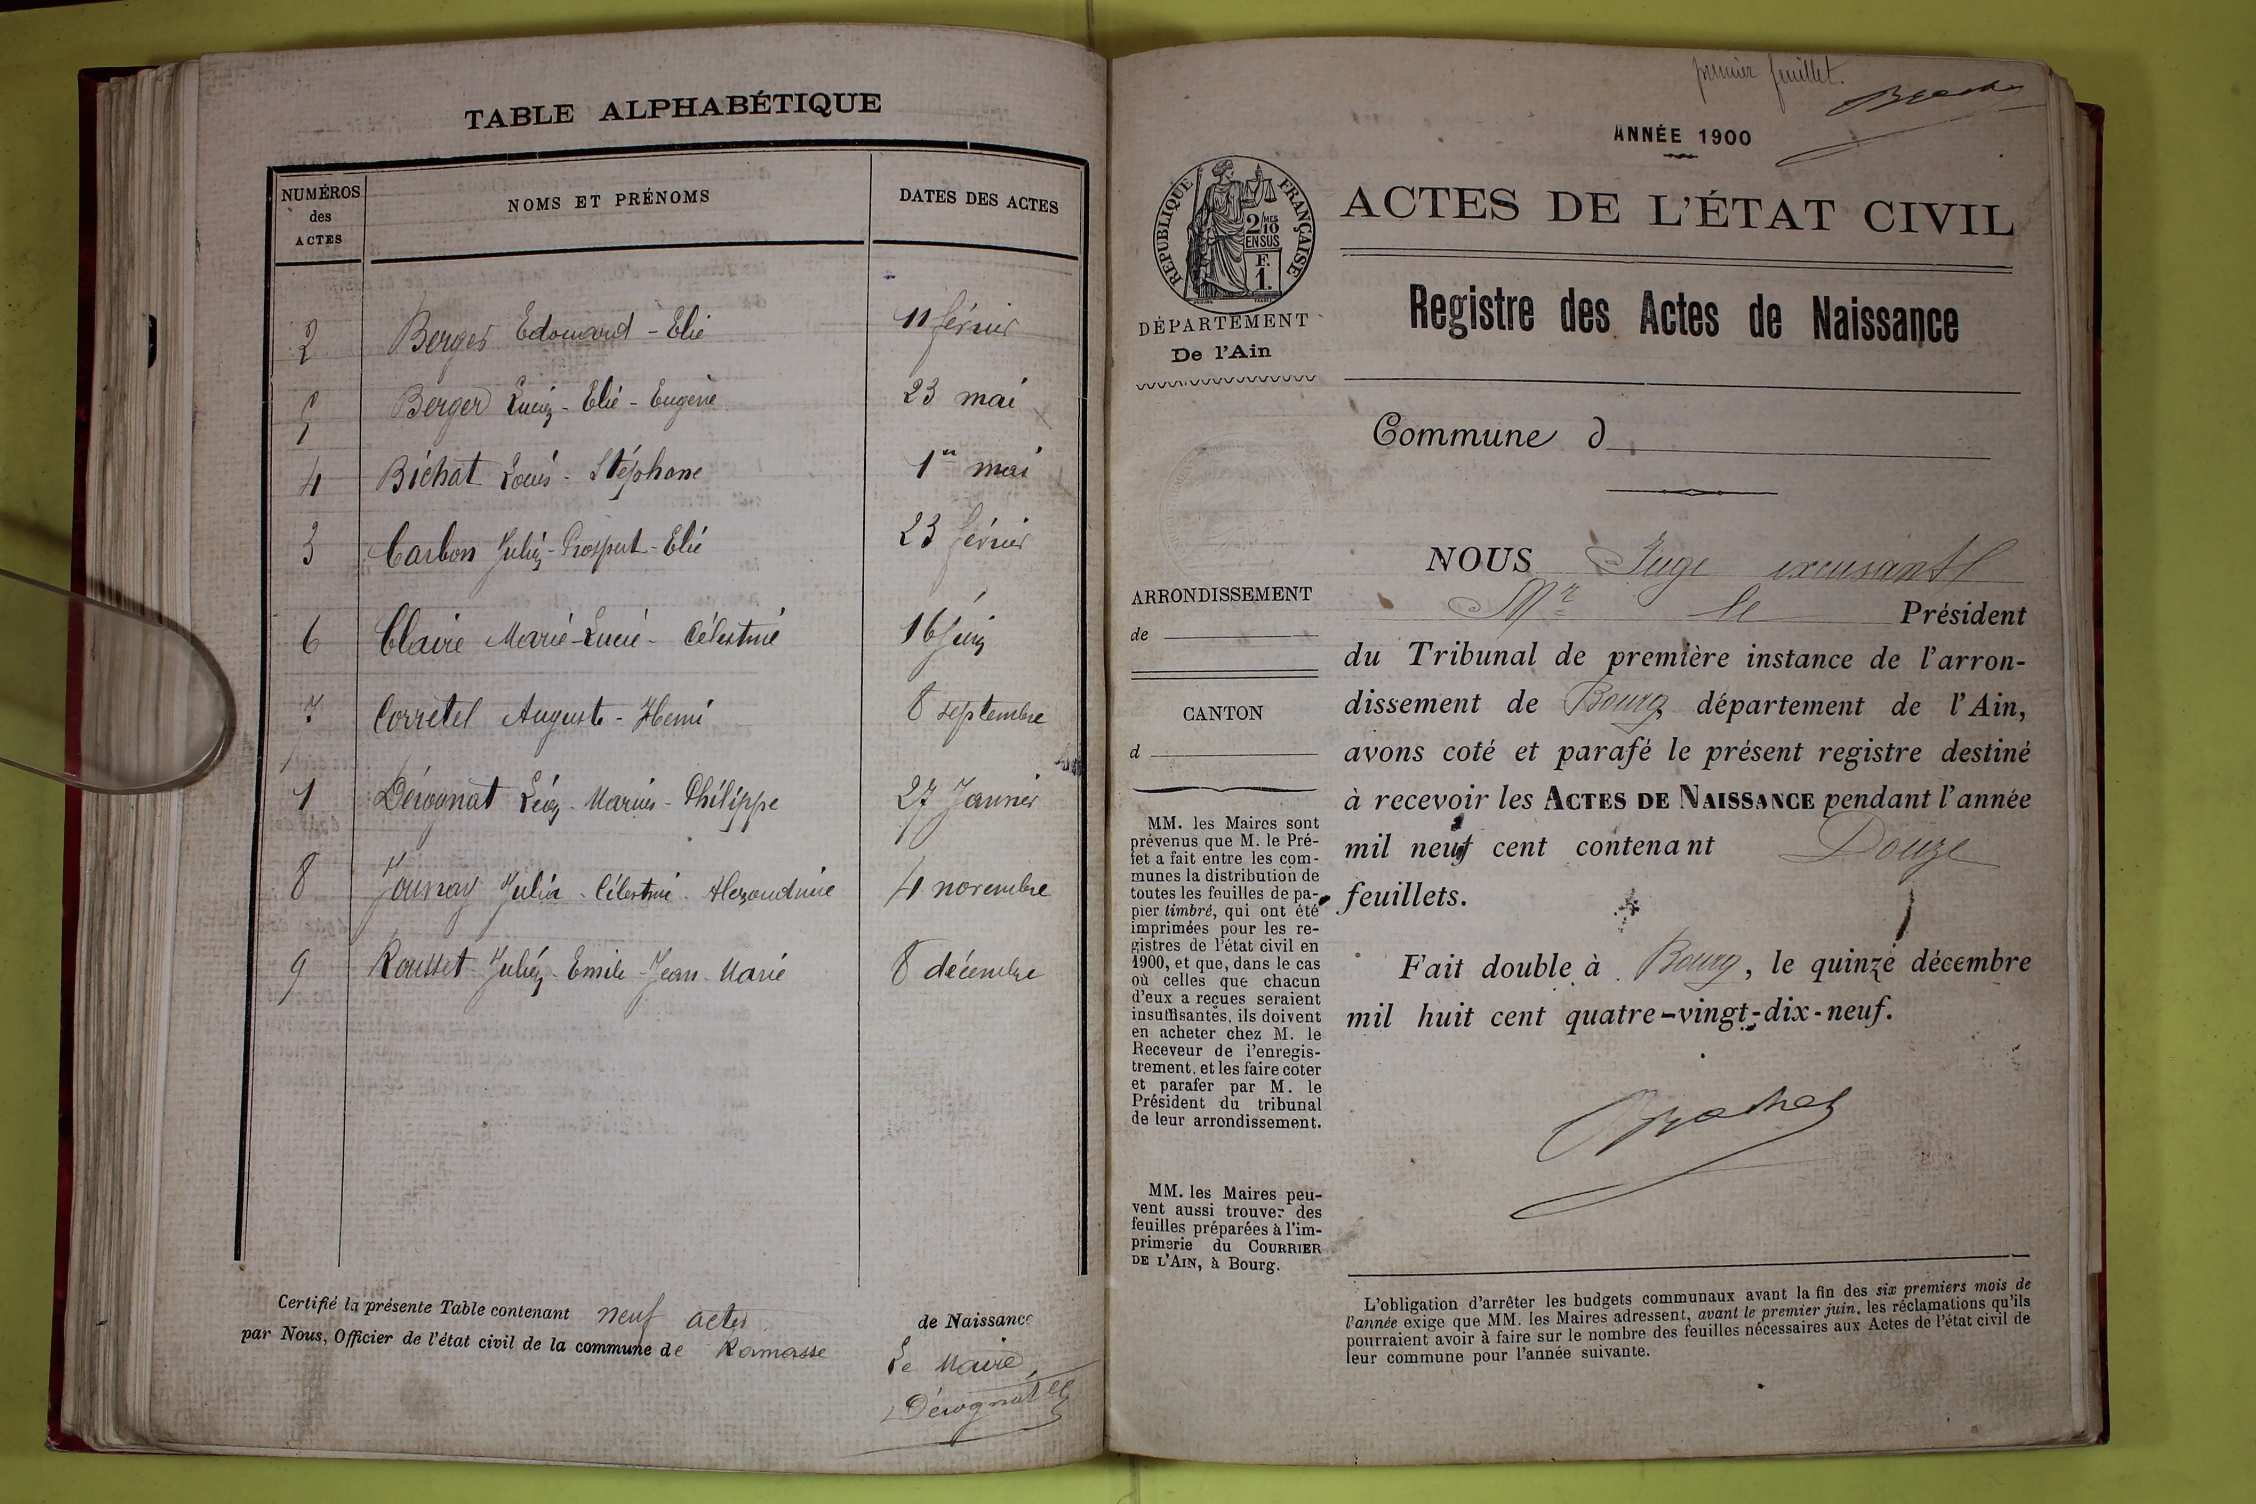 TABLE ALPHABÉTIQUE
NUMÉROS des ACTES
NOMS ET PRÉNOMS
DATES DES ACTES
2 Berger Edouard - Elie 11 février
5 Berger Lucien - Elie - Eugène 23 mai
4 Bichat Louis - Stéphane 1er mai
3 Carbon Julien - Prosper - Elie 23 février
6 Claire Marie - Lucie - Célestine 16 Juin
7 Corretel Auguste - Henri 8 septembre
1 Dérognat Léon - Marius - Philippe 27 Janvier
8 Journay Julia - Célestine - Alexandrine 4 novembre
9 Rousset Julien - Emile - Jean - Marie 8 décembre
Certifié la présente Table contenant neuf actes de Naissance
par Nous, Officier de l'état civil de la commune de Ramasse
Le Maire,
Dérognat
premier feuillet.
ANNÉE 1900
RÉPUBLIQUE FRANÇAISE
2/10 MES
EN SUS
F.
1.
DÉPARTEMENT
De l'Ain
ACTES DE L'ÉTAT CIVIL
Registre des Actes de Naissance
Commune d
ARRONDISSEMENT
de
CANTON
d
MM. les Maires sont
prévenus que M. le Pré-
fet a fait entre les com-
munes la distribution de
toutes les feuilles de pa-
pier timbré, qui ont été
imprimées pour les re-
gistres de l'état civil en
1900, et que, dans le cas
où celles que chacun
d'eux a reçues seraient
insuffisantes, ils doivent
en acheter chez M. le
Receveur de l'enregis-
trement, et les faire coter
et parafer par M. le
Président du tribunal
de leur arrondissement.
MM. les Maires peu-
vent aussi trouver des
feuilles préparées à l'im-
primerie du COURRIER
DE L'AIN, à Bourg.
NOUS Juge excusant
Mr le Président
du Tribunal de première instance de l'arron-
dissement de Bourg département de l'Ain,
avons coté et parafé le présent registre destiné
à recevoir les ACTES DE NAISSANCE pendant l'année
mil neuf cent contenant Douze
feuillets.
Fait double à Bourg, le quinze décembre
mil huit cent quatre-vingt-dix-neuf.
L'obligation d'arrêter les budgets communaux avant la fin des six premiers mois de
l'année exige que MM. les Maires adressent, avant le premier juin, les réclamations qu'ils
pourraient avoir à faire sur le nombre des feuilles nécessaires aux Actes de l'état civil de
leur commune pour l'année suivante.